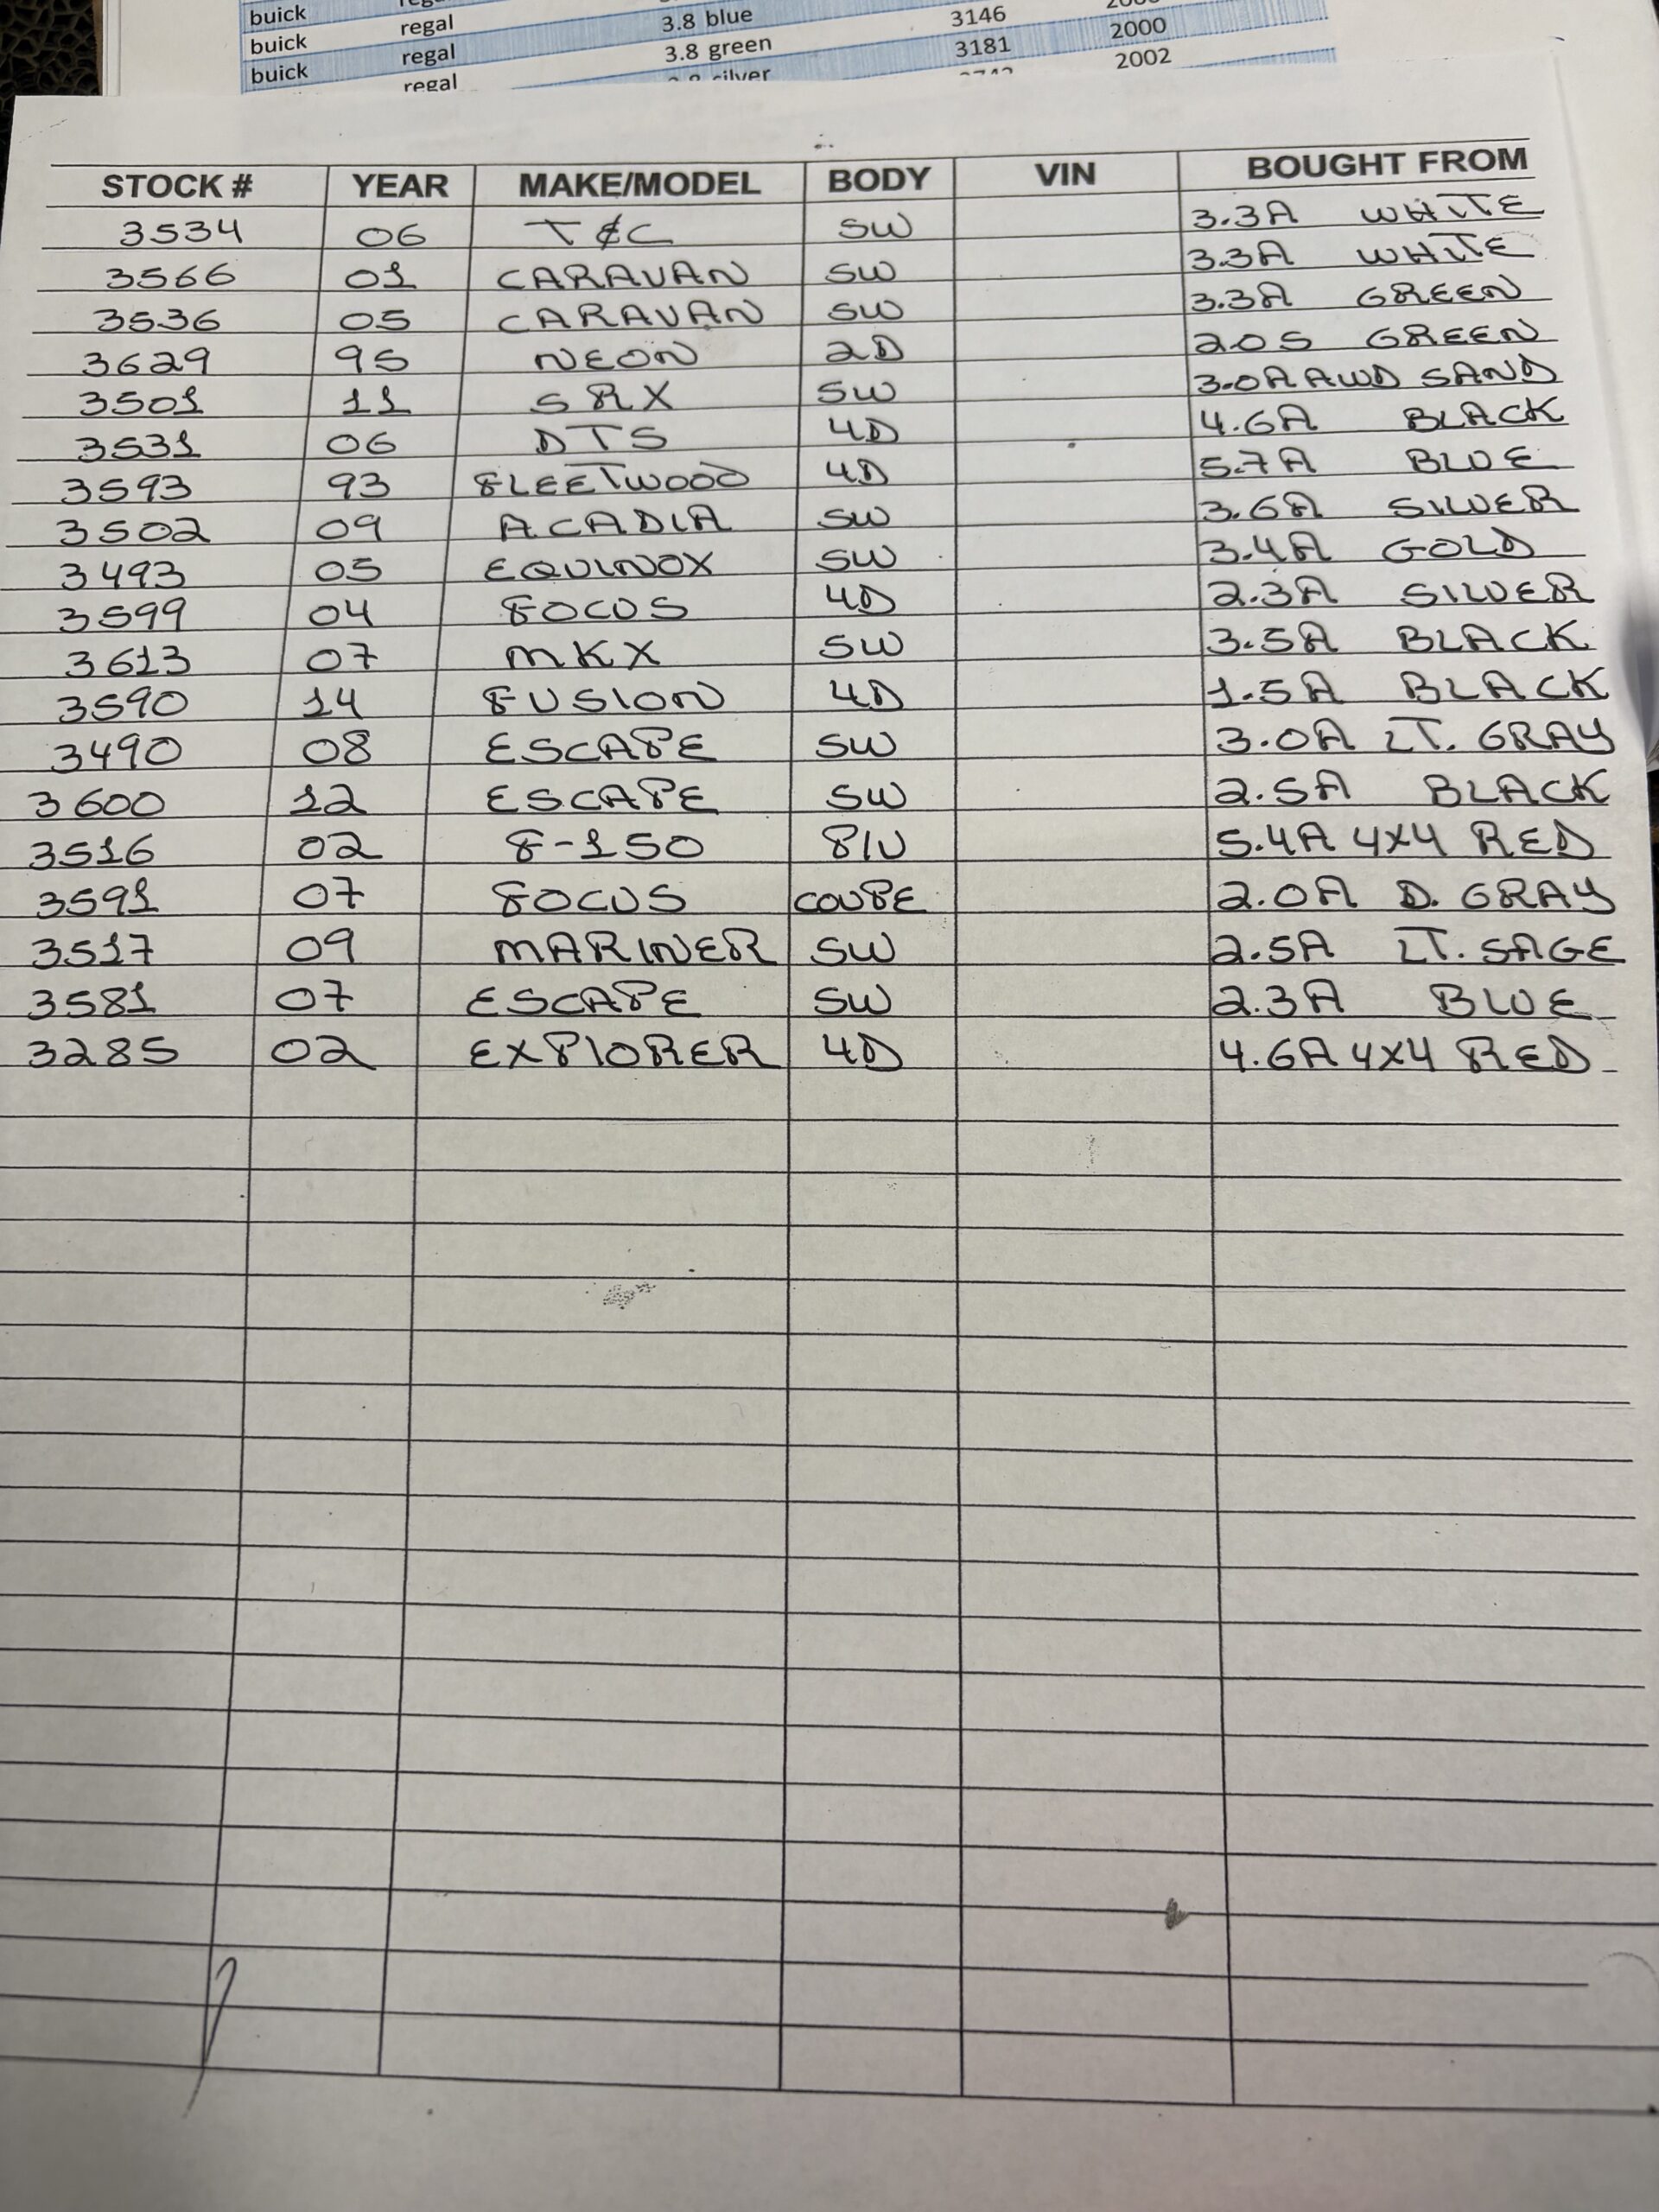 buick regal 3.8 blue 3146
buick regal 3.8 green 3181 2000
buick regal silver 2002
STOCK # YEAR MAKE/MODEL BODY VIN BOUGHT FROM
3534 06 T&C SW 3.3A WHITE
3566 01 CARAVAN SW 3.3A WHITE
3536 05 CARAVAN SW 3.3A GREEN
3629 95 NEON 2D 2.0 5 GREEN
3501 11 SRX SW 3.0A AWD SAND
3531 06 DTS 4D 4.6A BLACK
3593 93 FLEETWOOD 4D 5.7A BLUE
3502 09 ACADIA SW 3.6A SILVER
3493 05 EQUINOX SW 3.4A GOLD
3599 04 FOCUS 4D 2.3A SILVER
3613 07 MKX SW 3.5A BLACK
3590 14 FUSION 4D 1.5A BLACK
3490 08 ESCAPE SW 3.0A LT. GRAY
3600 12 ESCAPE SW 2.5A BLACK
3516 02 F-150 P/U 5.4A 4X4 RED
3591 07 FOCUS COUPE 2.0A D. GRAY
3517 09 MARINER SW 2.5A LT. SAGE
3581 07 ESCAPE SW 2.3A BLUE
3285 02 EXPLORER 4D 4.6A 4X4 RED